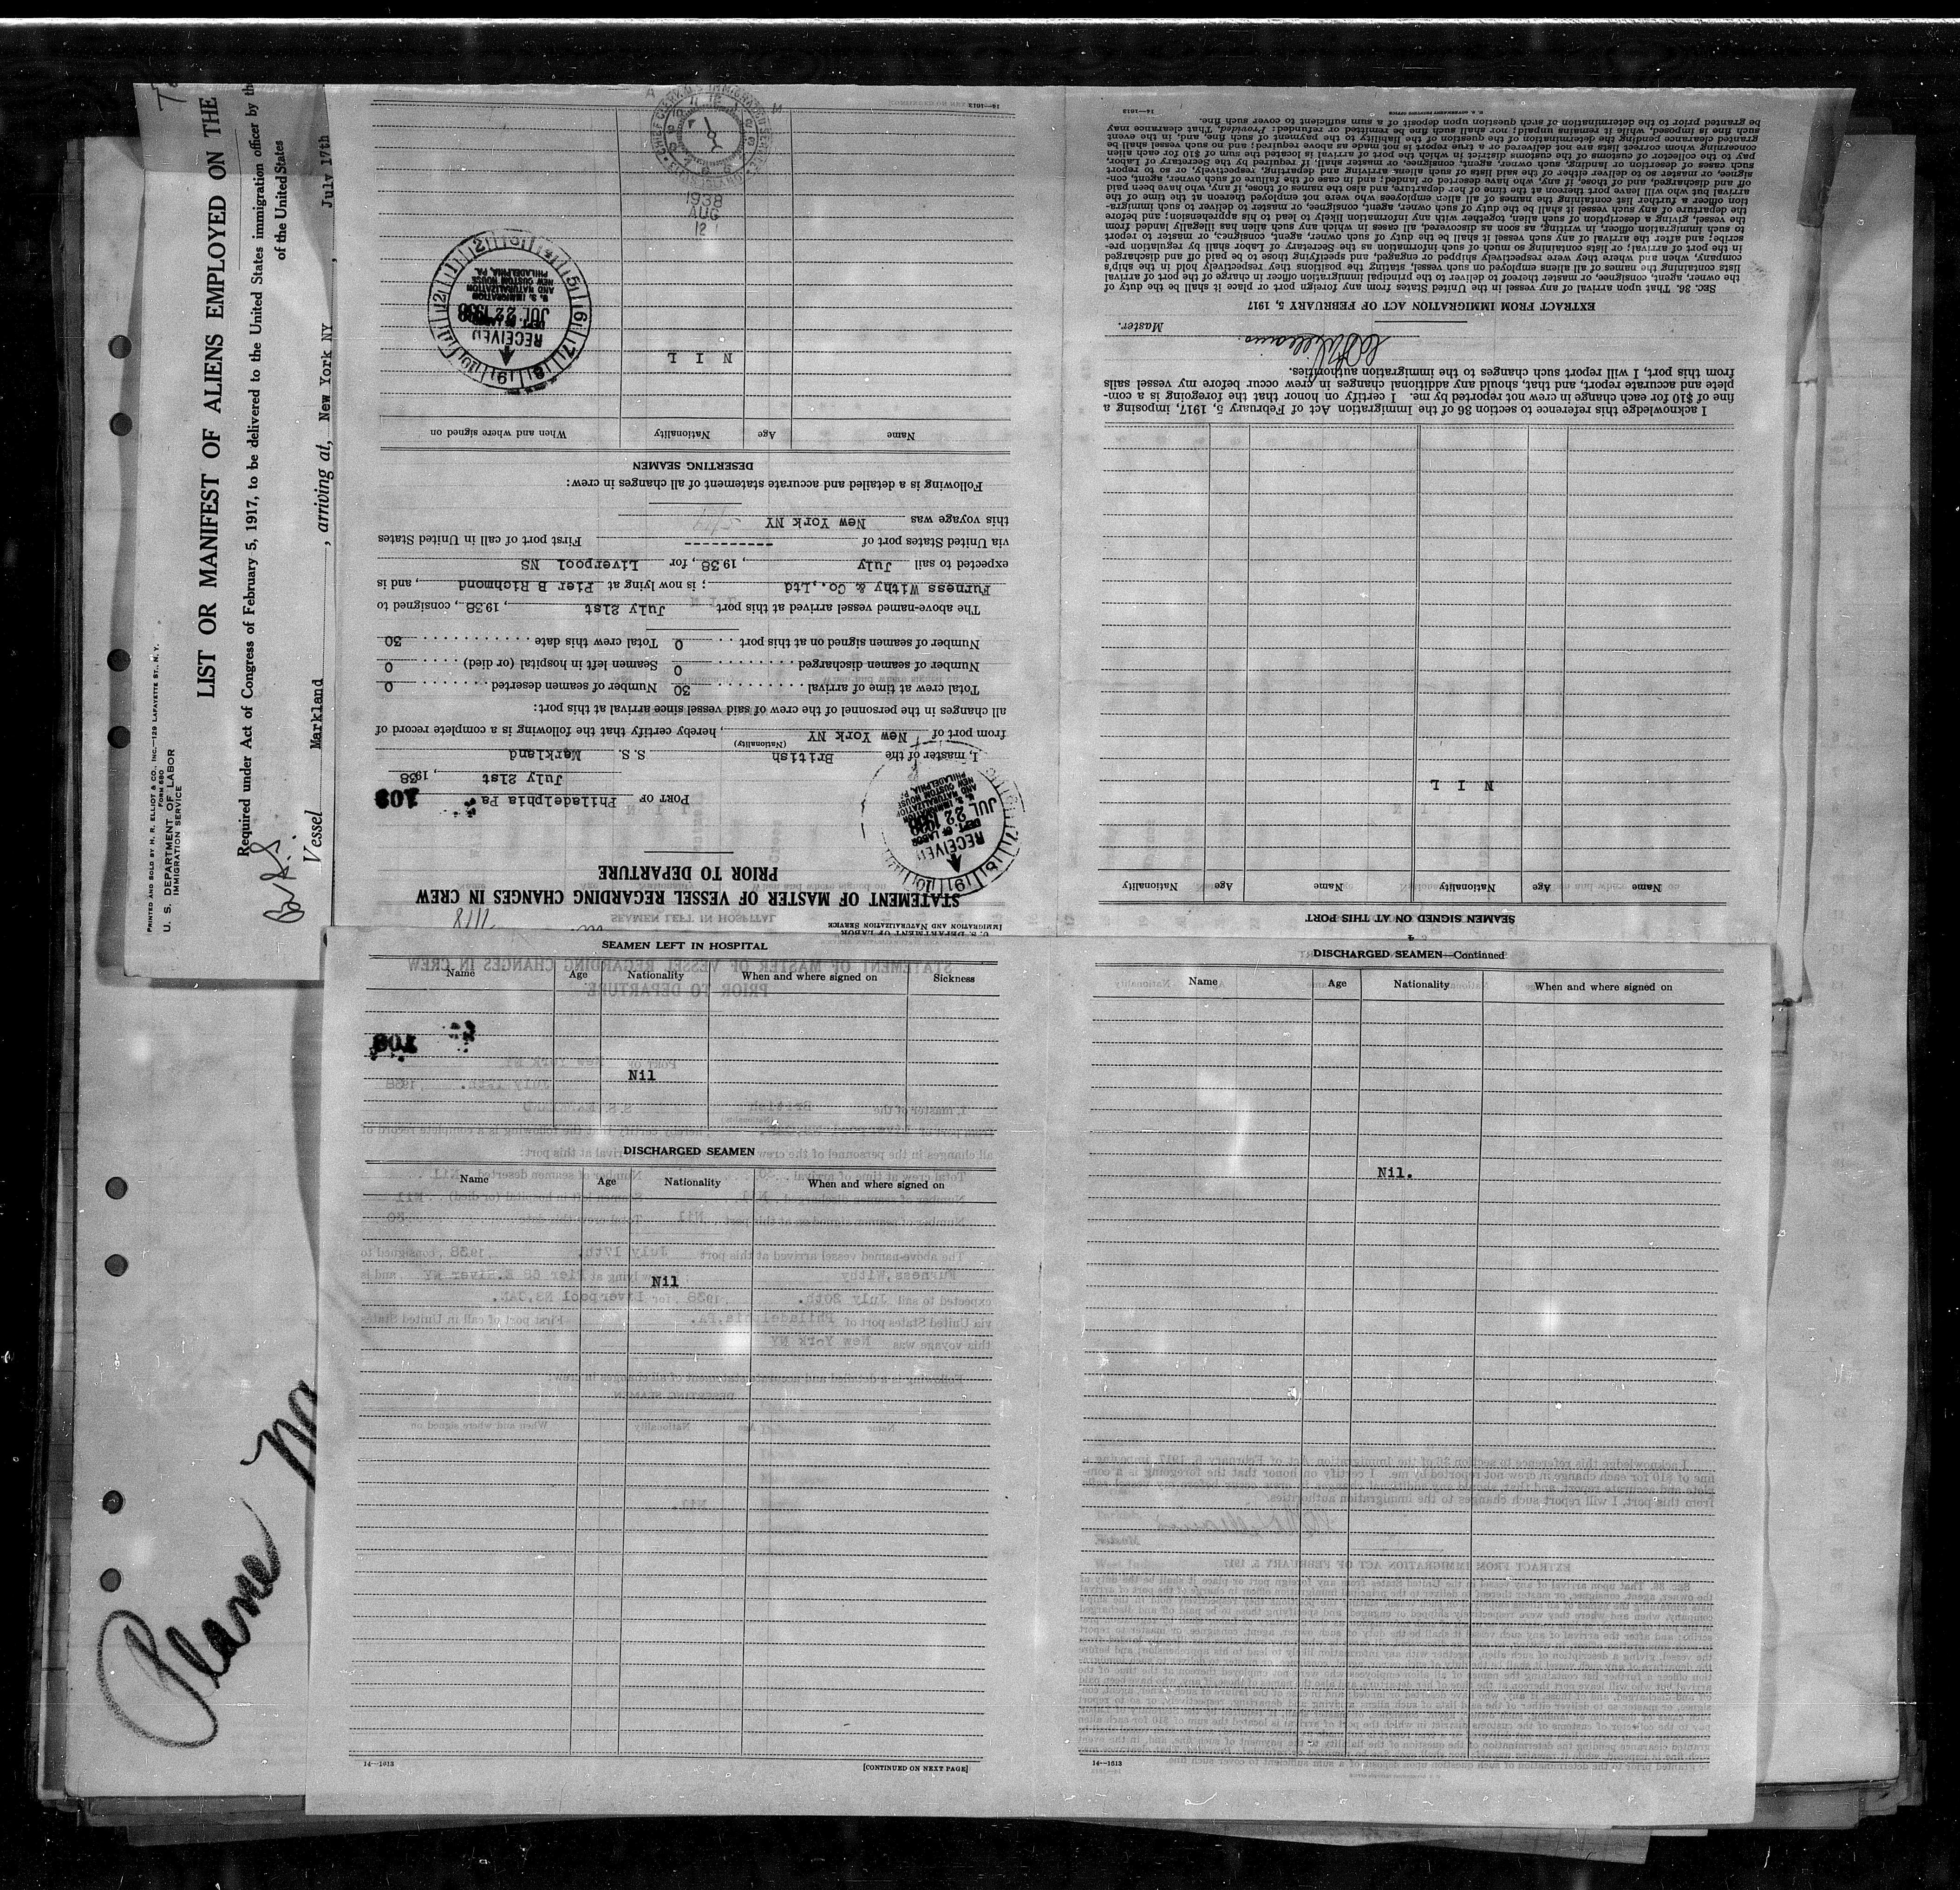 PRINTED AND SOLD BY H. R. ELLIOT & CO., INC.—129 LAFAYETTE ST., N. Y.
FORM 680
U. S. DEPARTMENT OF LABOR
IMMIGRATION SERVICE
LIST OR MANIFEST OF ALIENS EMPLOYED ON THE
Required under Act of Congress of February 5, 1917, to be delivered to the United States immigration officer by the
of the United States
Vessel Markland, arriving at, New York NY, July 17th
U. S. DEPARTMENT OF LABOR
IMMIGRATION AND NATURALIZATION SERVICE
STATEMENT OF MASTER OF VESSEL REGARDING CHANGES IN CREW
PRIOR TO DEPARTURE
PORT OF Philadelphia Pa
July 21st, 1938
I, master of the British S. S. Markland
(Nationality)
from port of New York NY, hereby certify that the following is a complete record of
all changes in the personnel of the crew of said vessel since arrival at this port:
Total crew at time of arrival 30 Number of seamen deserted 0
Number of seamen discharged 0 Seamen left in hospital (or died) 0
Number of seamen signed on at this port 0 Total crew this date 30
The above-named vessel arrived at this port July 21st, 1938, consigned to
Furness Withy & Co., Ltd; is now lying at Pier B Richmond, and is
expected to sail July, 1938, for Liverpool NS
via United States port of --------- First port of call in United States
this voyage was New York NY
Following is a detailed and accurate statement of all changes in crew:
DESERTING SEAMEN
Name Age Nationality When and where signed on
N I L
RECEIVED
DEPT. OF LABOR
JUL 22 1938
U. S. IMMIGRATION
AND NATURALIZATION
NEW CUSTOM HOUSE
PHILADELPHIA, PA.
RECEIVED
DEPT. OF LABOR
JUL 22
U. S. IMMIGRATION
AND NATURALIZATION
NEW CUSTOM HOUSE
PHILADELPHIA, PA.
1938
AUG
12
14—1613
SEAMEN SIGNED ON AT THIS PORT
Name Age Nationality Name Age Nationality
N I L
I acknowledge this reference to section 36 of the Immigration Act of February 5, 1917, imposing a
fine of $10 for each change in crew not reported by me. I certify on honor that the foregoing is a com-
plete and accurate report, and that, should any additional changes in crew occur before my vessel sails
from this port, I will report such changes to the immigration authorities.
Master.
EXTRACT FROM IMMIGRATION ACT OF FEBRUARY 5, 1917
SEC. 36. That upon arrival of any vessel in the United States from any foreign port or place it shall be the duty of
the owner, agent, consignee, or master thereof to deliver to the principal immigration officer in charge of the port of arrival
lists containing the names of all aliens employed on such vessel, stating the positions they respectively hold in the ship's
company, when and where they were respectively shipped or engaged, and specifying those to be paid off and discharged
in the port of arrival; or lists containing so much of such information as the Secretary of Labor shall by regulation pre-
scribe; and after the arrival of any such vessel it shall be the duty of such owner, agent, consignee, or master to report
to such immigration officer, in writing, as soon as discovered, all cases in which any such alien has illegally landed from
the vessel, giving a description of such alien, together with any information likely to lead to his apprehension; and before
the departure of any such vessel it shall be the duty of such owner, agent, consignee, or master to deliver to such immigra-
tion officer a further list containing the names of all alien employees who were not employed thereon at the time of the
arrival but who will leave port thereon at the time of her departure, and also the names of those, if any, who have been paid
off and discharged, and of those, if any, who have deserted or landed; and in case of the failure of such owner, agent, con-
signee, or master so to deliver either of the said lists of such aliens arriving and departing, respectively, or so to report
such cases of desertion or landing, such owner, agent, consignee, or master shall, if required by the Secretary of Labor,
pay to the collector of customs of the customs district in which the port of arrival is located the sum of $10 for each alien
concerning whom correct lists are not delivered or a true report is not made as above required; and no such vessel shall be
granted clearance pending the determination of the question of the liability to the payment of such fine, and, in the event
such fine is imposed, while it remains unpaid; nor shall such fine be remitted or refunded: Provided, That clearance may
be granted prior to the determination of such question upon deposit of a sum sufficient to cover such fine.
14—1613
SEAMEN LEFT IN HOSPITAL
Name Age Nationality When and where signed on Sickness
Nil
DISCHARGED SEAMEN
Name Age Nationality When and where signed on
Nil
14—1613 [CONTINUED ON NEXT PAGE]
DISCHARGED SEAMEN—Continued
Name Age Nationality When and where signed on
Nil.
14—1613